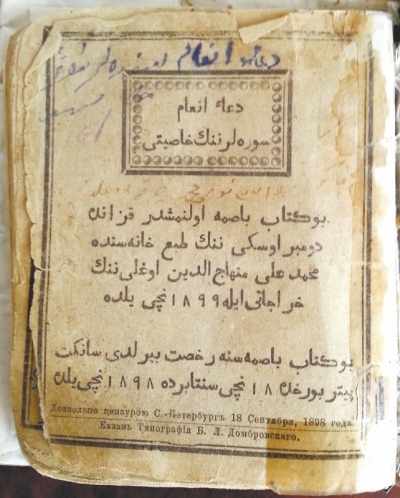 دعاء انعام
دعاء انعام
سوره‌لرننك خاصيتى
بو كتاب باصمه اولنمشدر قزانده
دومبراوسكى ننك طبع خانه‌سنده
محمد على منهاج الدين اوغلى ننك
خراجاتى ايله ١٨٩٩ نچى يلده
بو كتاب باصمه‌سنه رخصت بيرلدى سانكت
پيتربورغده ١٨ نچى سنتابرده ١٨٩٨ نچى يلده
Дозволено цензурою С.-Петербургъ 18 Сентября, 1898 года.
Казань Типографія Б. Л. Домбровскаго.